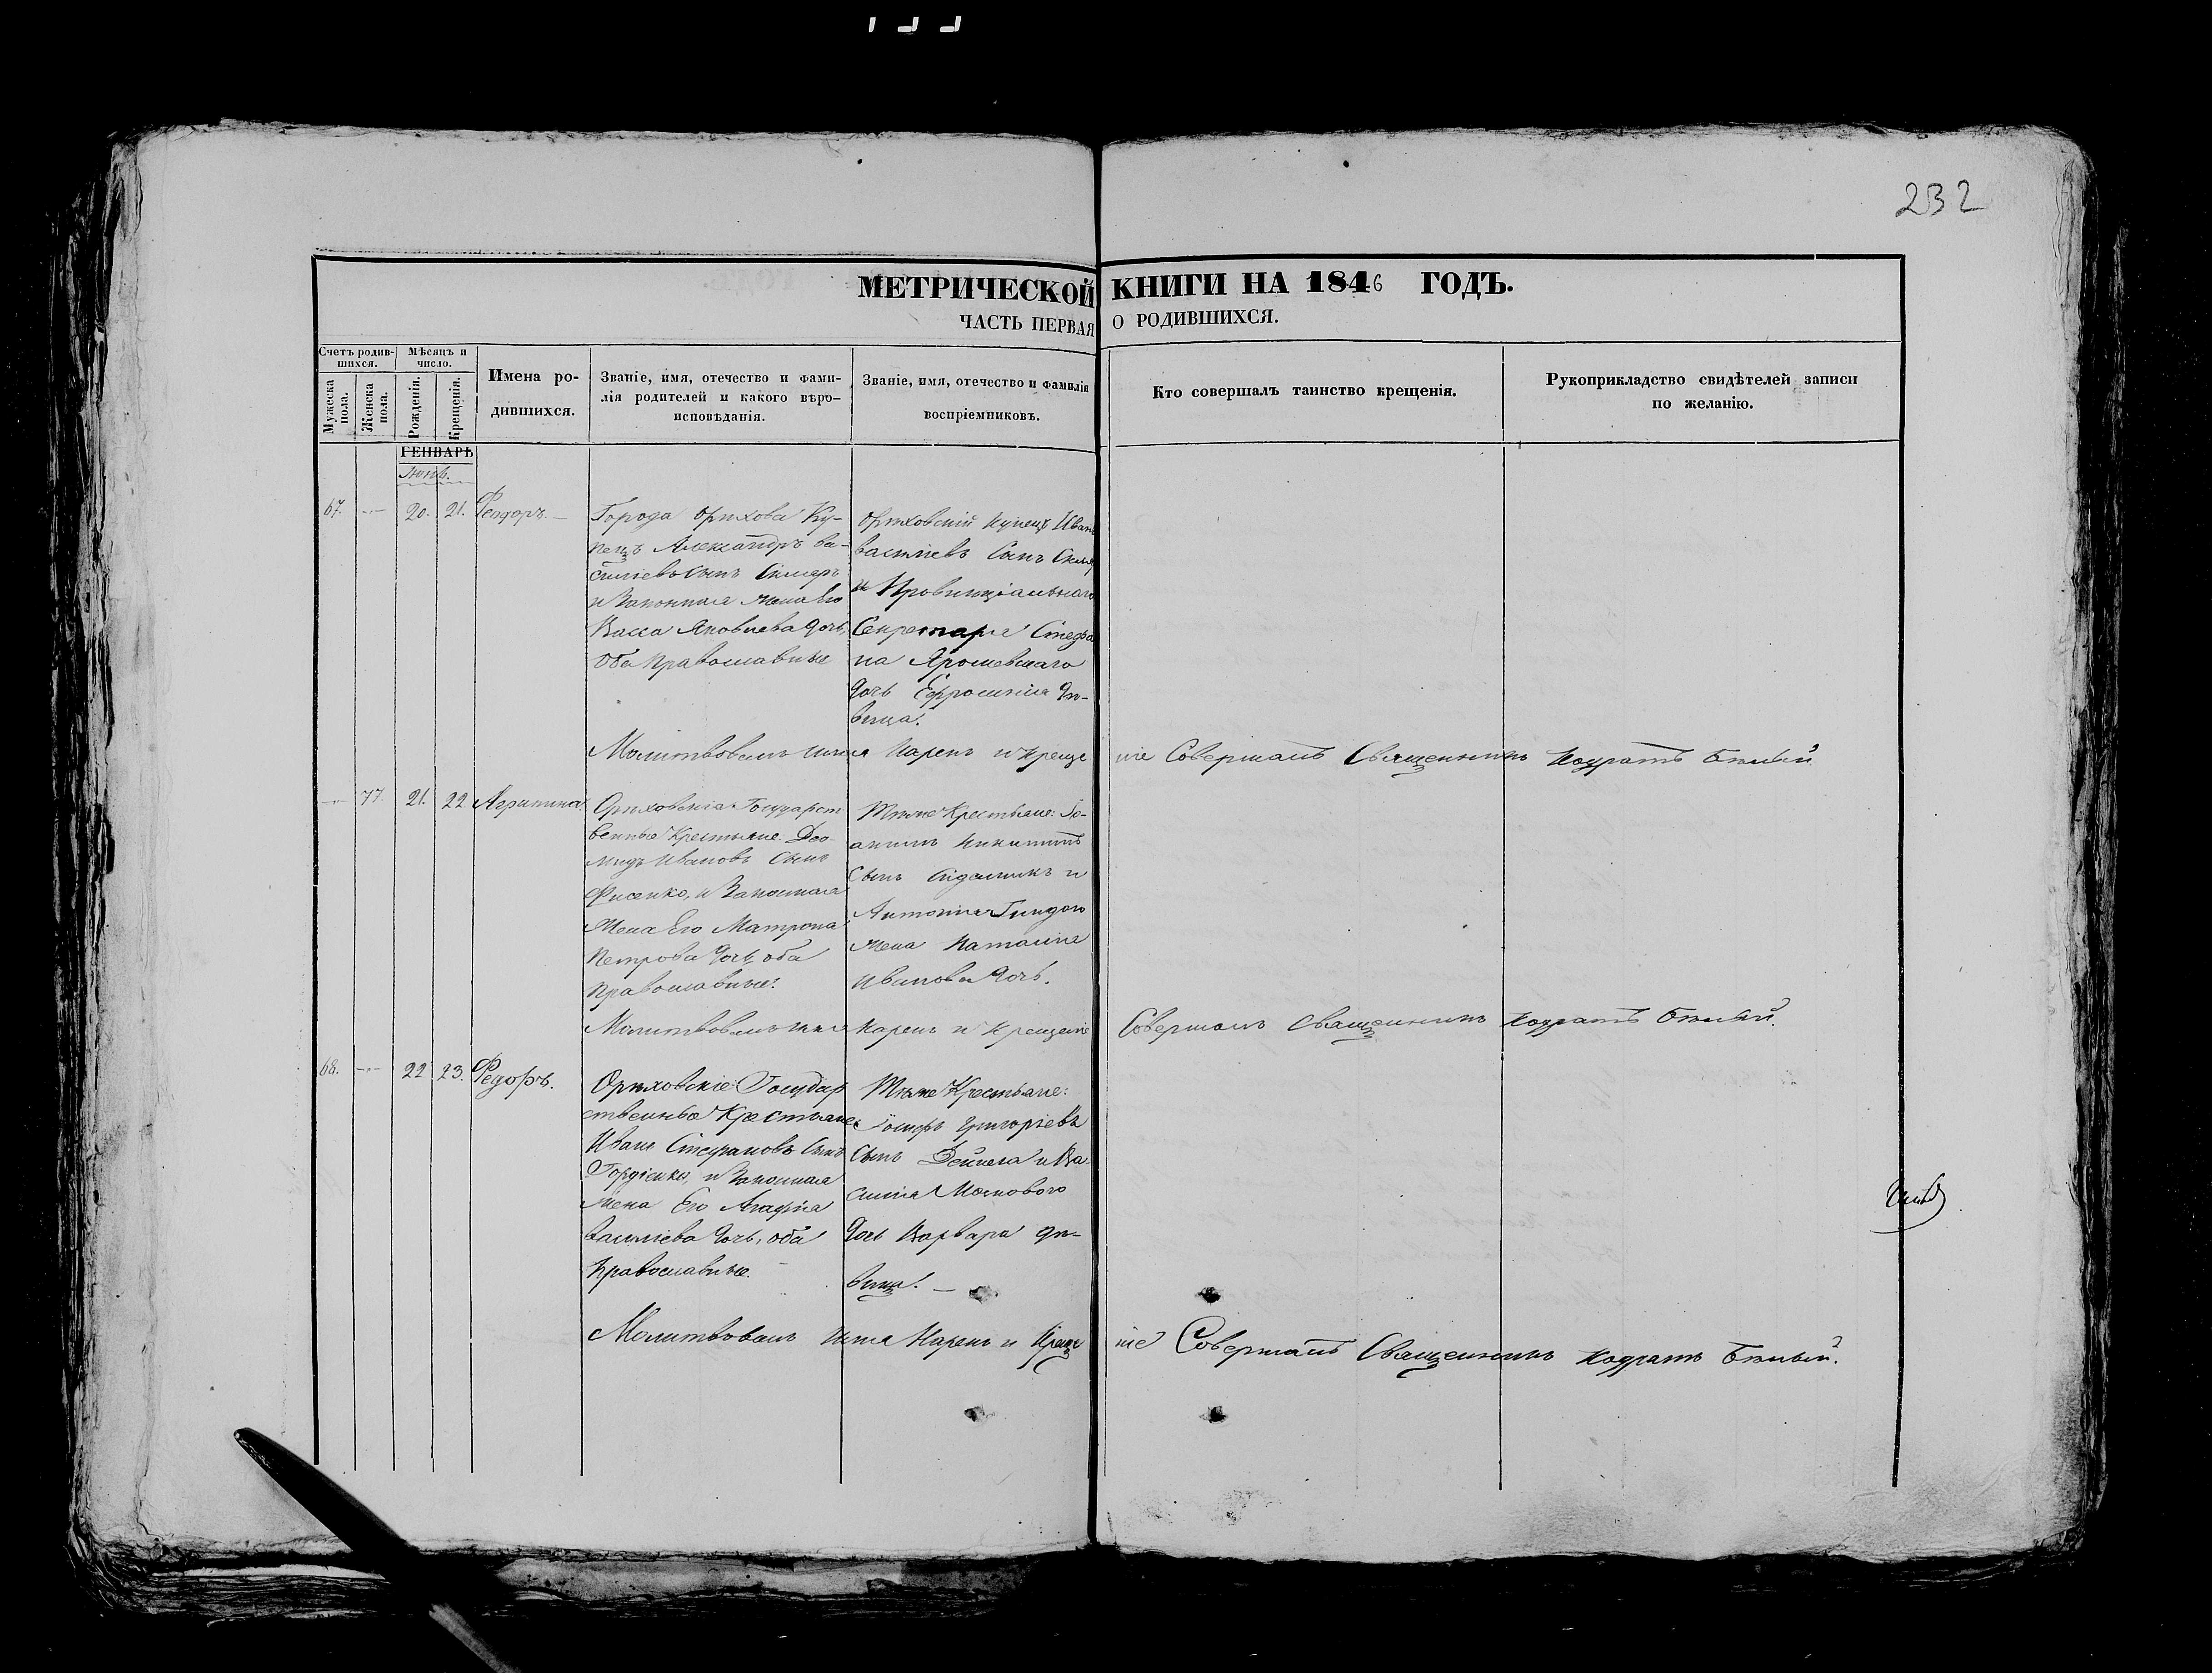 232
МЕТРИЧЕСКОЙ КНИГИ НА 1846 ГОДЪ.
ЧАСТЬ ПЕРВАЯ О РОДИВШИХСЯ.
Счетъ родив-
шихся.
Мужеска пола.
Женска пола.
Мѣсяцъ и
число.
Рожденія.
Крещенія.
Имена ро-
дившихся.
Званіе, имя, отечество и фами-
лія родителей и какого вѣро-
исповѣданія.
Званіе, имя, отечество и фамилія
воспріемниковъ.
Кто совершалъ таинство крещенія.
Рукоприкладство свидѣтелей записи
по желанію.
ГЕНВАРЬ
67. 20. 21. Феодоръ.
Города Орѣхова Ку-
пецъ Александръ Ва-
силіевъ Сынъ
и Законная жена Его
Васса Яковлева дочь,
оба Православные
Орѣховскій купецъ Иванъ
Сынъ
и Провинціальнаго
Секретаря Стефа
на Ярошевскаго
дочь Ефросинія дѣ-
вица.
Молитвовалъ имя Нареклъ и Креще
ніе Совершалъ Священникъ Кодратъ Бѣлый
77. 21. 22 Агрипина
Орѣховскіе Государст
венные Крестьяне Део
мидъ Ивановъ Сынъ
Фисенко, и Законная
Жена Его Матрона
Петрова дочь оба
Православные.
Тѣже Крестьяне: Іо-
Сынъ и
жена Наталія
Иванова дочь.
Молитвовалъ имя Нареклъ и Крещеніе
Совершалъ Священникъ Кодратъ Бѣлый.
68. 22 23. Федоръ.
Орѣховскіе Государ
ственные Крестьяне
Иванъ Стефановъ Сынъ
Гордіенко, и Законная
жена Его Агафія
Василіева дочь, оба
Православные.
Тѣже Крестьяне:
Іосифъ Григоріевъ
Сынъ Дейнега и Ва-
силія Москового
дочь Варвара дѣ-
вица.
Молитвовалъ Имя Нареклъ и Креще
ніе Совершалъ Священникъ Кодратъ Бѣлый.